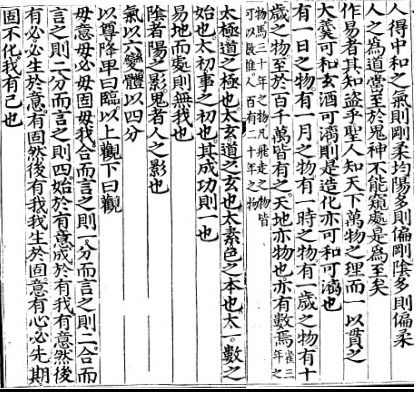 人得中和之氣則剛柔均陽多則偏剛陰多則偏柔
人之為道當至於鬼神不能窺處是為至矣
作易者其知盜乎聖人知天下萬物之理而一以貫之
大羮可和玄酒可漓則是造化亦可和可漓也
有一日之物有一月之物有一時之物有一歲之物有十
歲之物至於百千萬皆有之天地亦物也亦有數焉雀三年之
物馬三十年之物凡飛走之物皆
可以數推人百有二十年之物
太極道之極也太玄道之玄也太素色之本也太一數之
始也太初事之初也其成功則一也
易地而處則無我也
陰者陽之影鬼者人之影也
氣以六變體以四分
以尊降卑曰臨以上觀下曰觀
毋意毋必毋固毋我合而言之則一分而言之則二合而
言之則二分而言之則四始於有意成於有我有意然後
有必必生於意有固然後有我我生於固意有心必先期
固不化我有己也